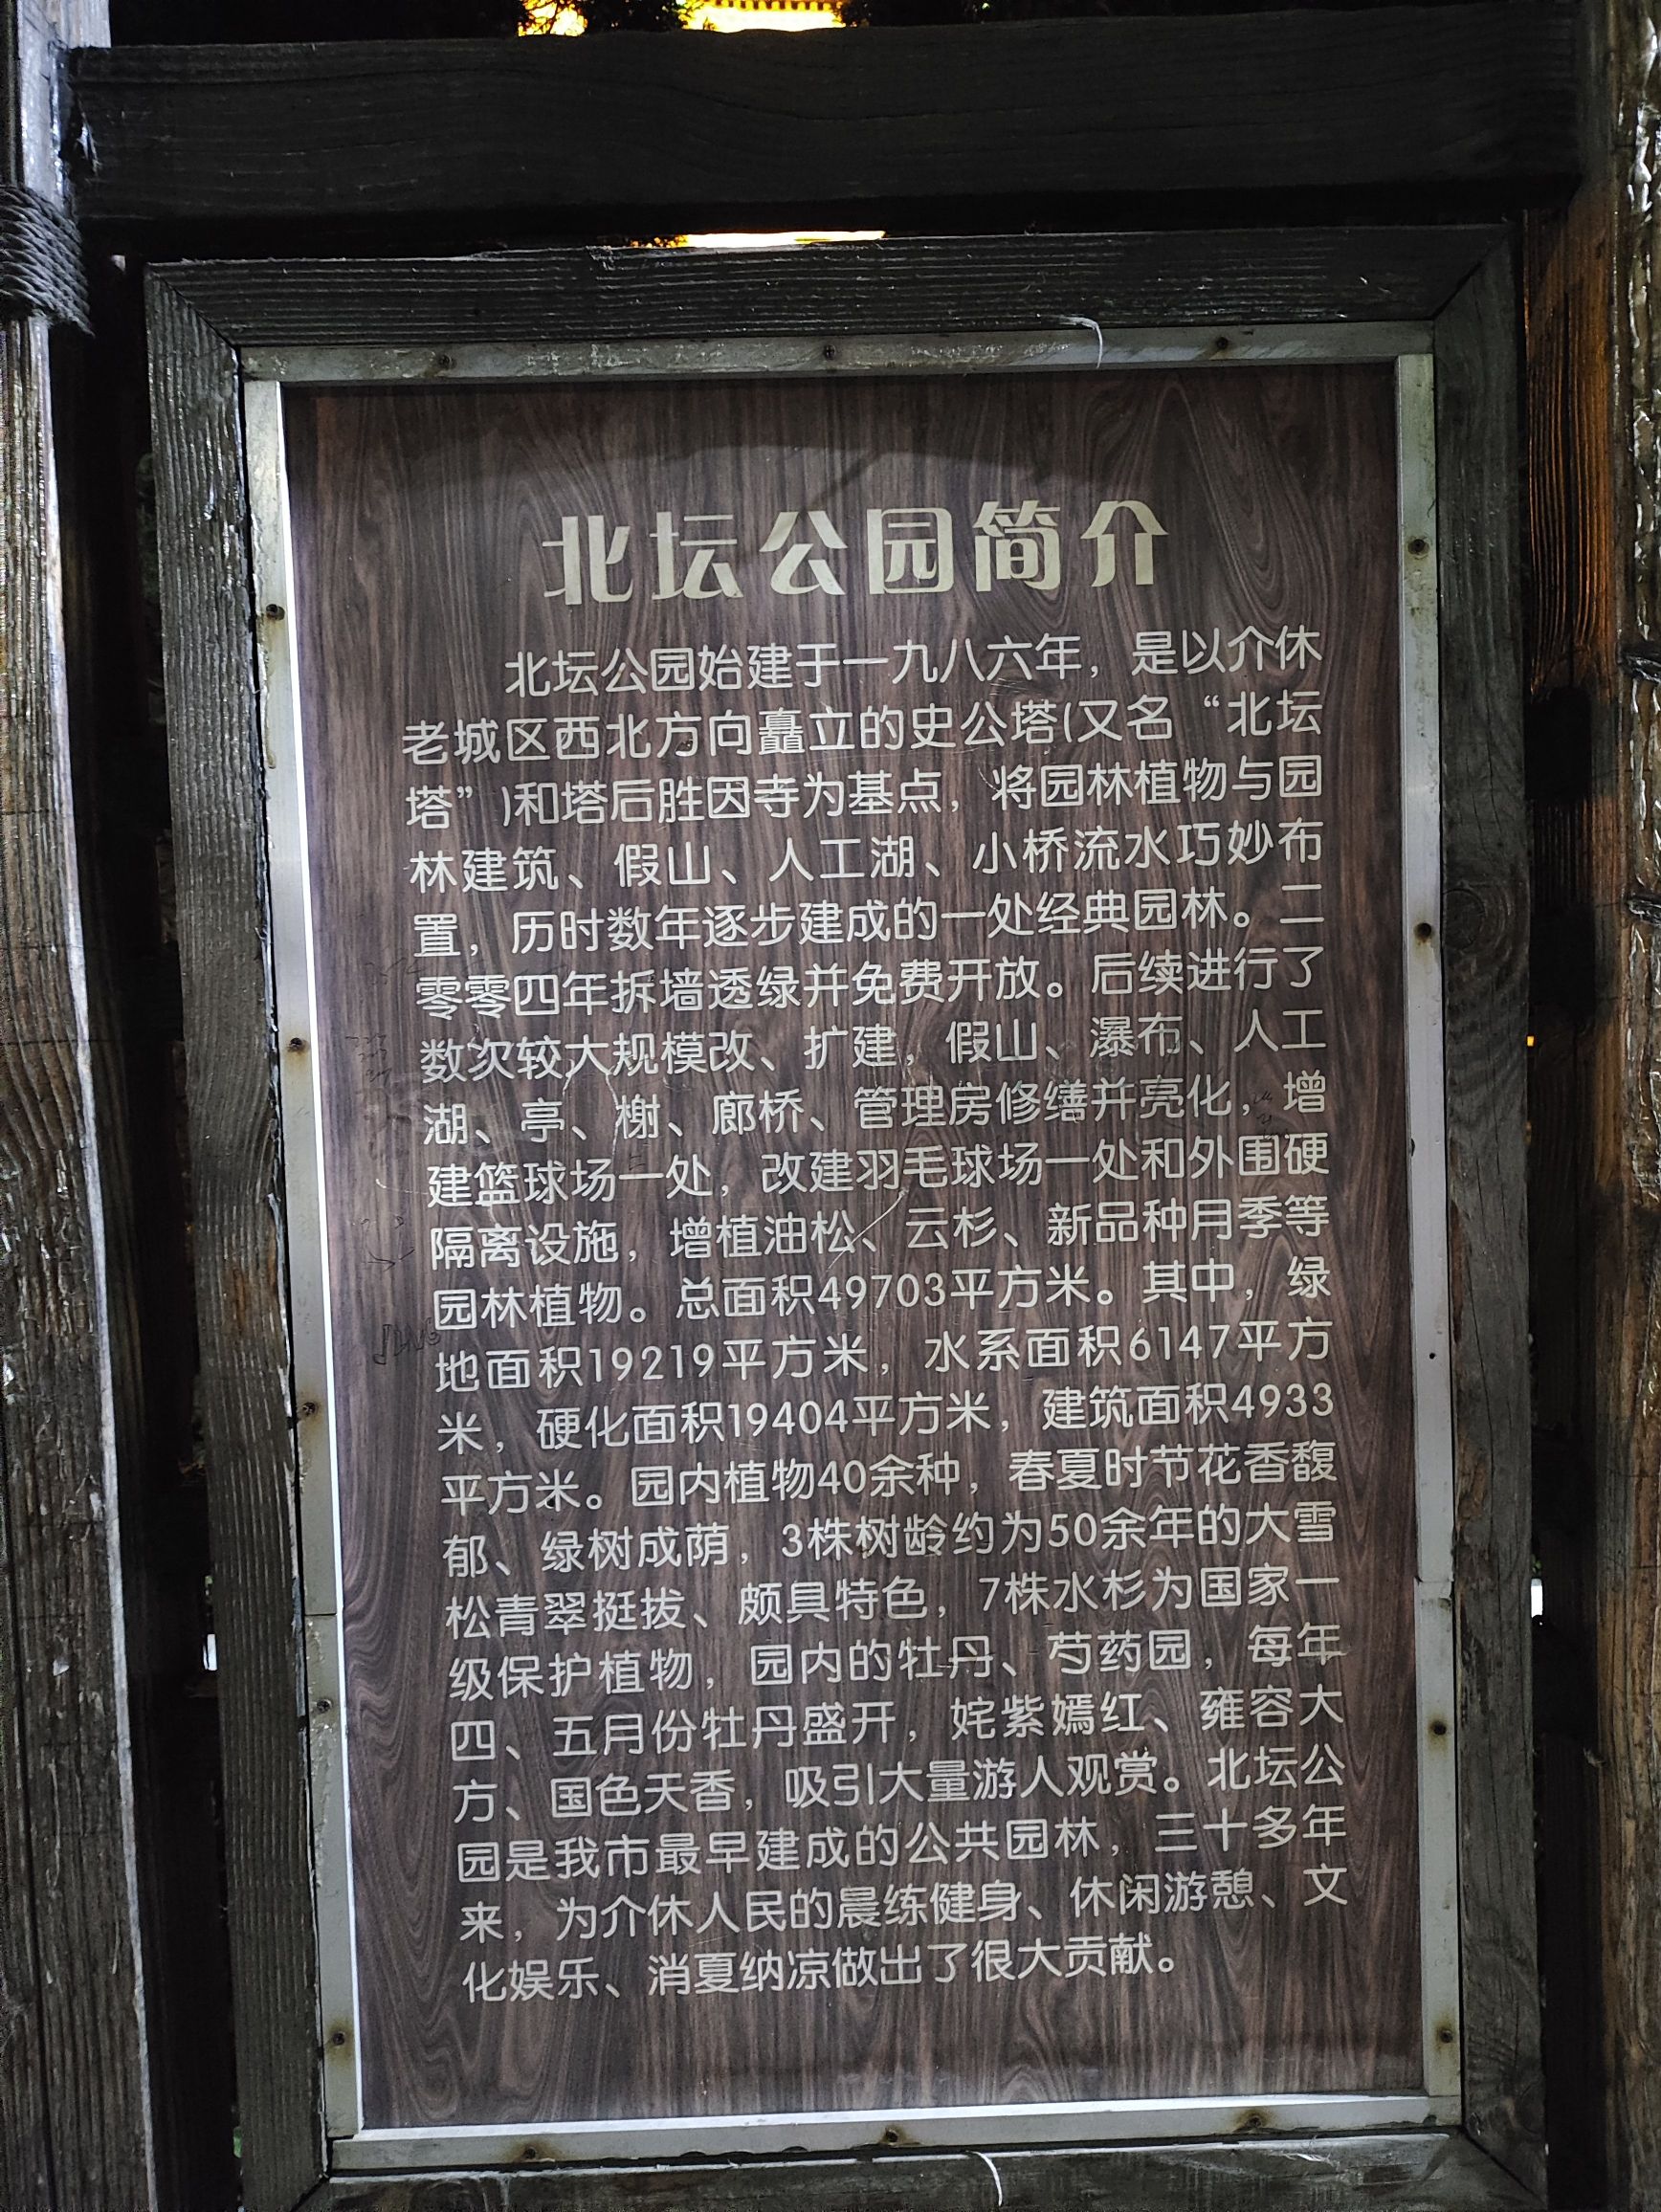 北坛公园简介
北坛公园始建于一九八六年，是以介休
老城区西北方向矗立的史公塔(又名“北坛
塔”)和塔后胜因寺为基点，将园林植物与园
林建筑、假山、人工湖、小桥流水巧妙布
置，历时数年逐步建成的一处经典园林。二
零零四年拆墙透绿并免费开放。后续进行了
数次较大规模改、扩建，假山、瀑布、人工
湖、亭、榭、廊桥、管理房修缮并亮化，增
建篮球场一处，改建羽毛球场一处和外围硬
隔离设施，增植油松、云杉、新品种月季等
园林植物。总面积49703平方米。其中，绿
地面积19219平方米，水系面积6147平方
米，硬化面积19404平方米，建筑面积4933
平方米。园内植物40余种，春夏时节花香馥
郁、绿树成荫，3株树龄约为50余年的大雪
松青翠挺拔、颇具特色，7株水杉为国家一
级保护植物，园内的牡丹、芍药园，每年
四、五月份牡丹盛开，姹紫嫣红、雍容大
方、国色天香，吸引大量游人观赏。北坛公
园是我市最早建成的公共园林，三十多年
来，为介休人民的晨练健身、休闲游憩、文
化娱乐、消夏纳凉做出了很大贡献。